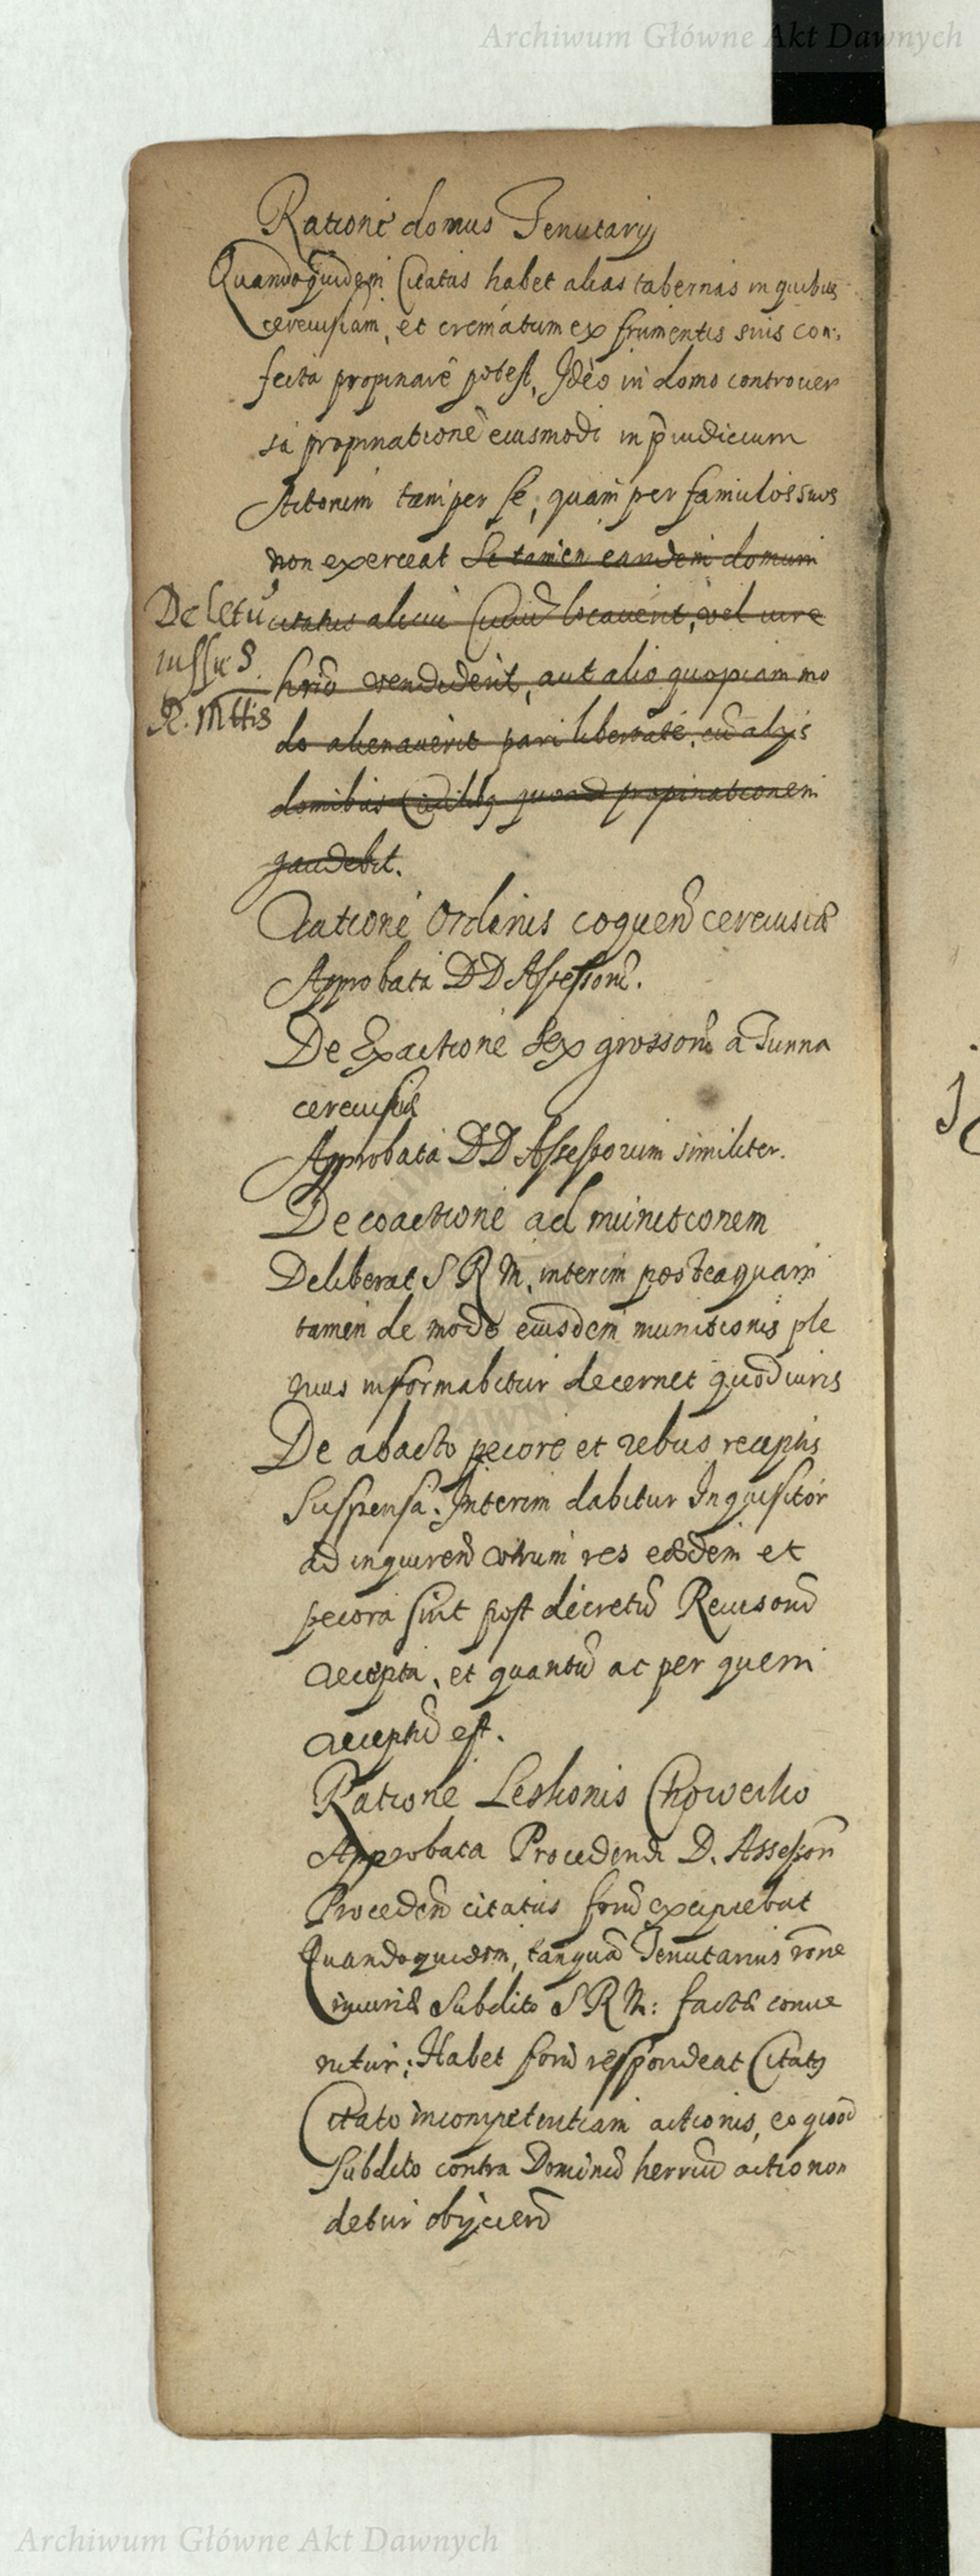 Archiwum Główne Akt Dawnych
Ratione domus Tenutarij
Quandoquidem Citatus habet alias tabernas in quibus
cereuisiam, et crematum ex frumentis suis con:
fecta propinare potest, Ideo in domo controuer
sa propinatione eiusmodi in p̄iudicium
Actorum tam per se, quam per famulos suos
non exerceat Si tamen eandem domum
Deletū citatus alicui locauerit, vel iure
iussu S. hrio vendiderit, aut alio quopiam mo
R. Mttis do alienauerit pari libertate, cū alijs
domibus quoad propinationem
gaudebit.
Ratione Ordinis coquend cereuisiæ
Approbata DD Assessorū.
De Exactione sex grossorū a Tunna
cereuisiæ
Approbata DD Assessorum similiter.
De coactione ad munitionem
Deliberat S R M, interim posteaquam
tamen de modo eiusdem munitionis ple
nius informabitur decernet quod iuris
De abacto pecore et rebus receptis
Suspensa. Interim dabitur Inquisitor
ad inquirend utrum res eædem et
pecora sint post decretū Reuisorū
accepta, et quantū ac per quem
acceptū est.
Ratione Leskonis Chowerko
Approbata Procedendi D. Assessorū
Procedend citatus forū excipiebat
Quandoquidem, tanquā Tenutarius rōne
iniuriæ Subdito S R M: factæ conue
nitur; Habet forū respondeat Citatus
Citato incompetentiam actionis, eo quod
subdito contra Dominū actio non
detur obijciend
Archiwum Główne Akt Dawnych